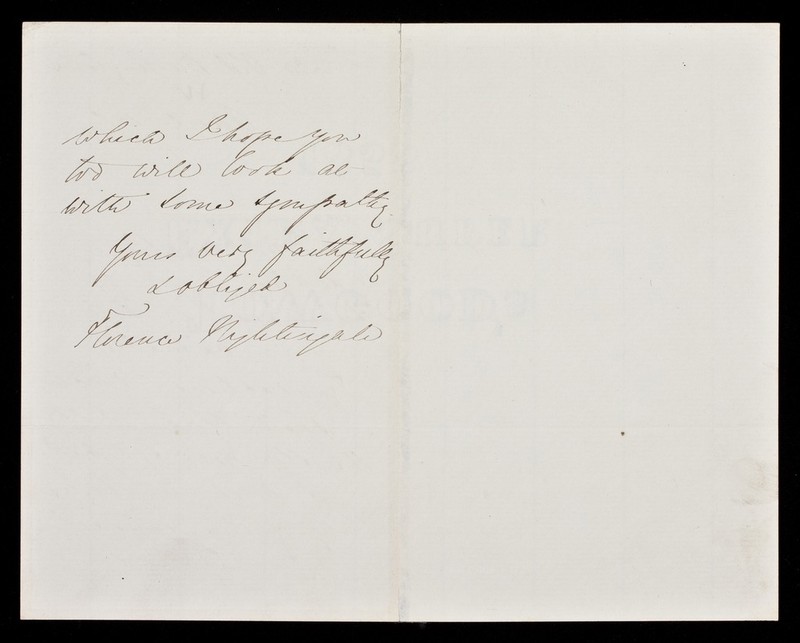 which I hope you
too will look at
with some sympathy.
Yours very faithfully
& obliged
Florence Nightingale